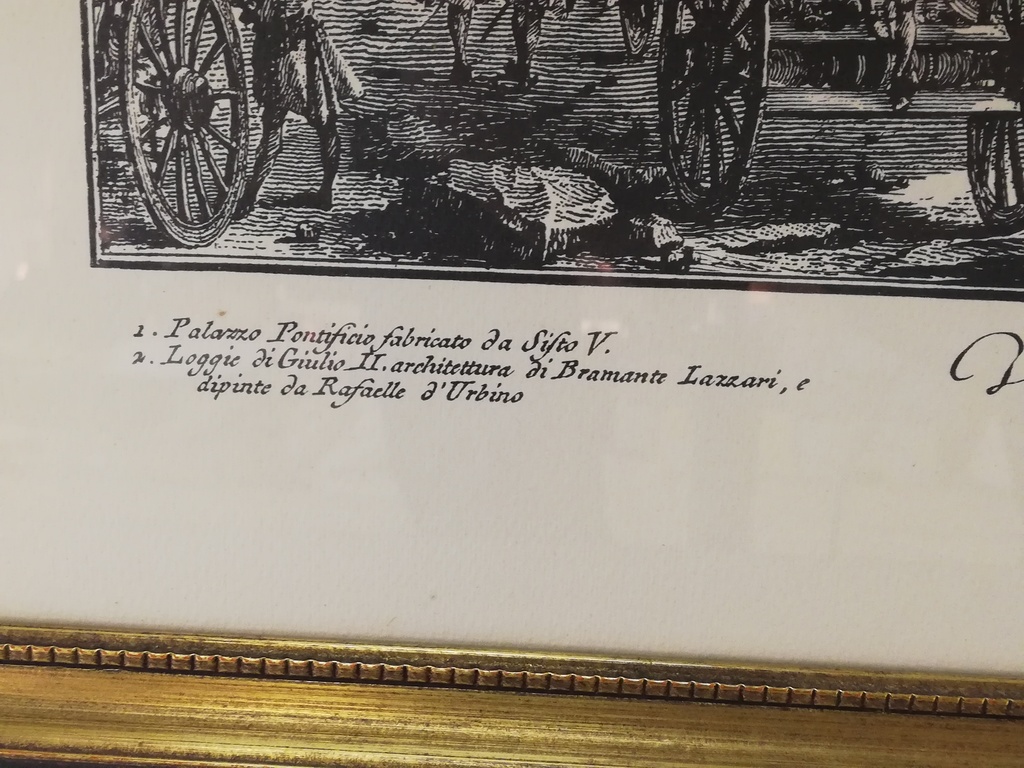 1. Palazzo Pontificio fabricato da Siſto V.
2. Loggie di Giulio II. architettura di Bramante Lazzari, e
dipinte da Rafaelle d'Urbino
V